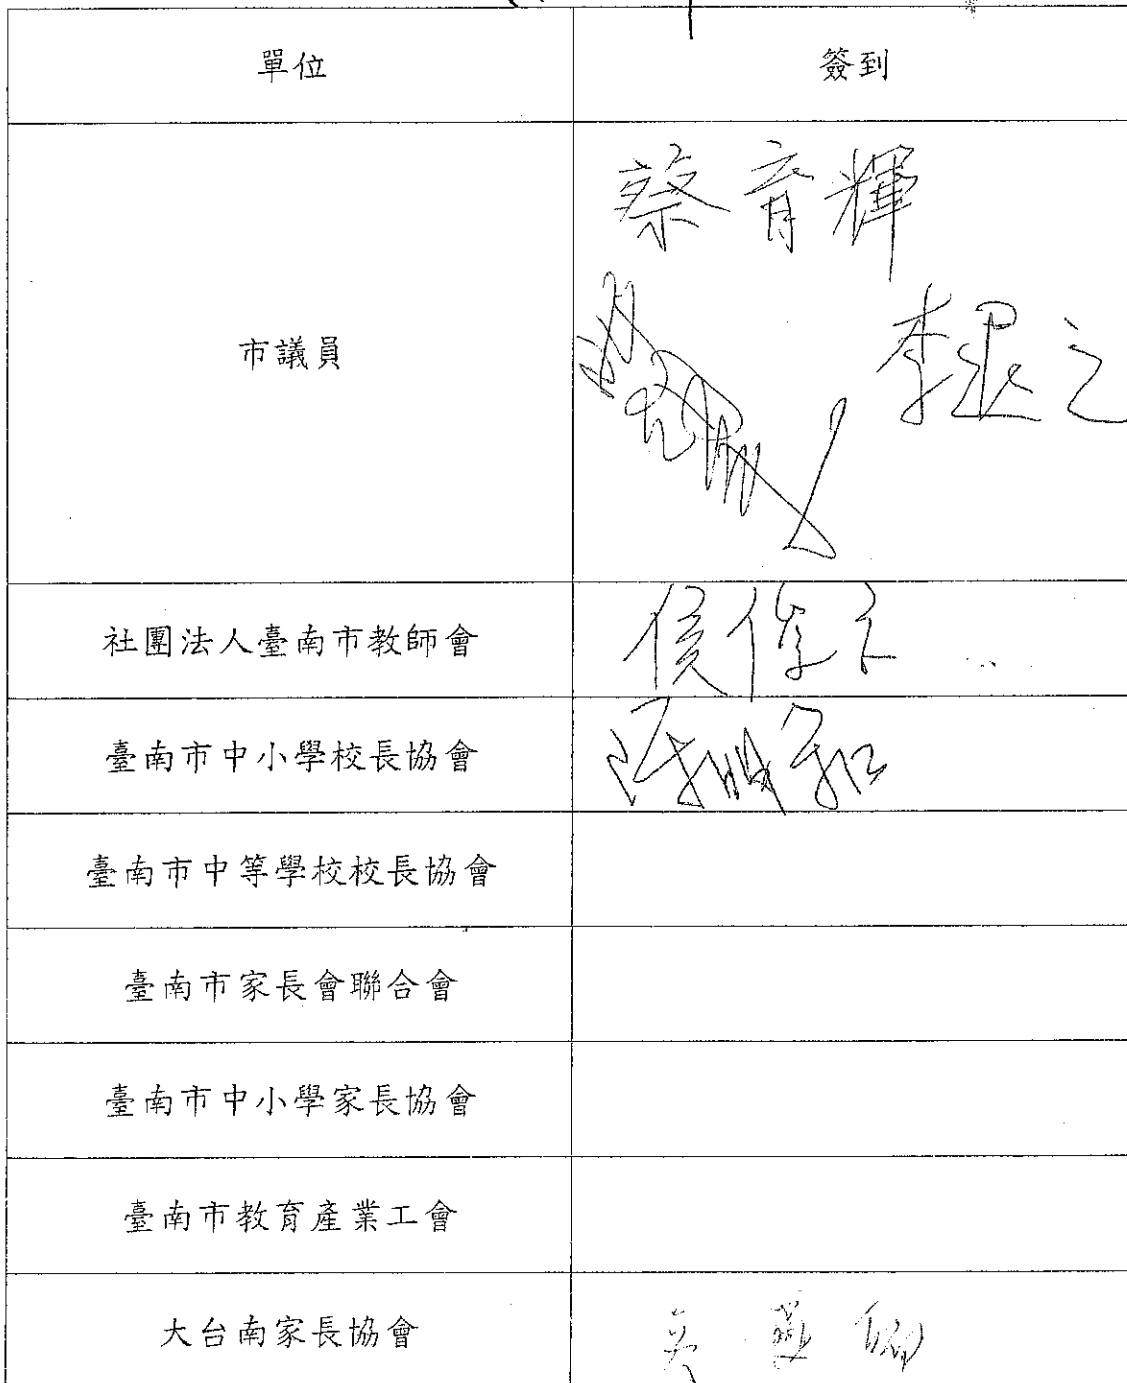 單位 簽到
市議員 蔡育輝
李
社團法人臺南市教師會 侯俊
臺南市中小學校長協會
臺南市中等學校校長協會
臺南市家長會聯合會
臺南市中小學家長協會
臺南市教育產業工會
大台南家長協會 吳